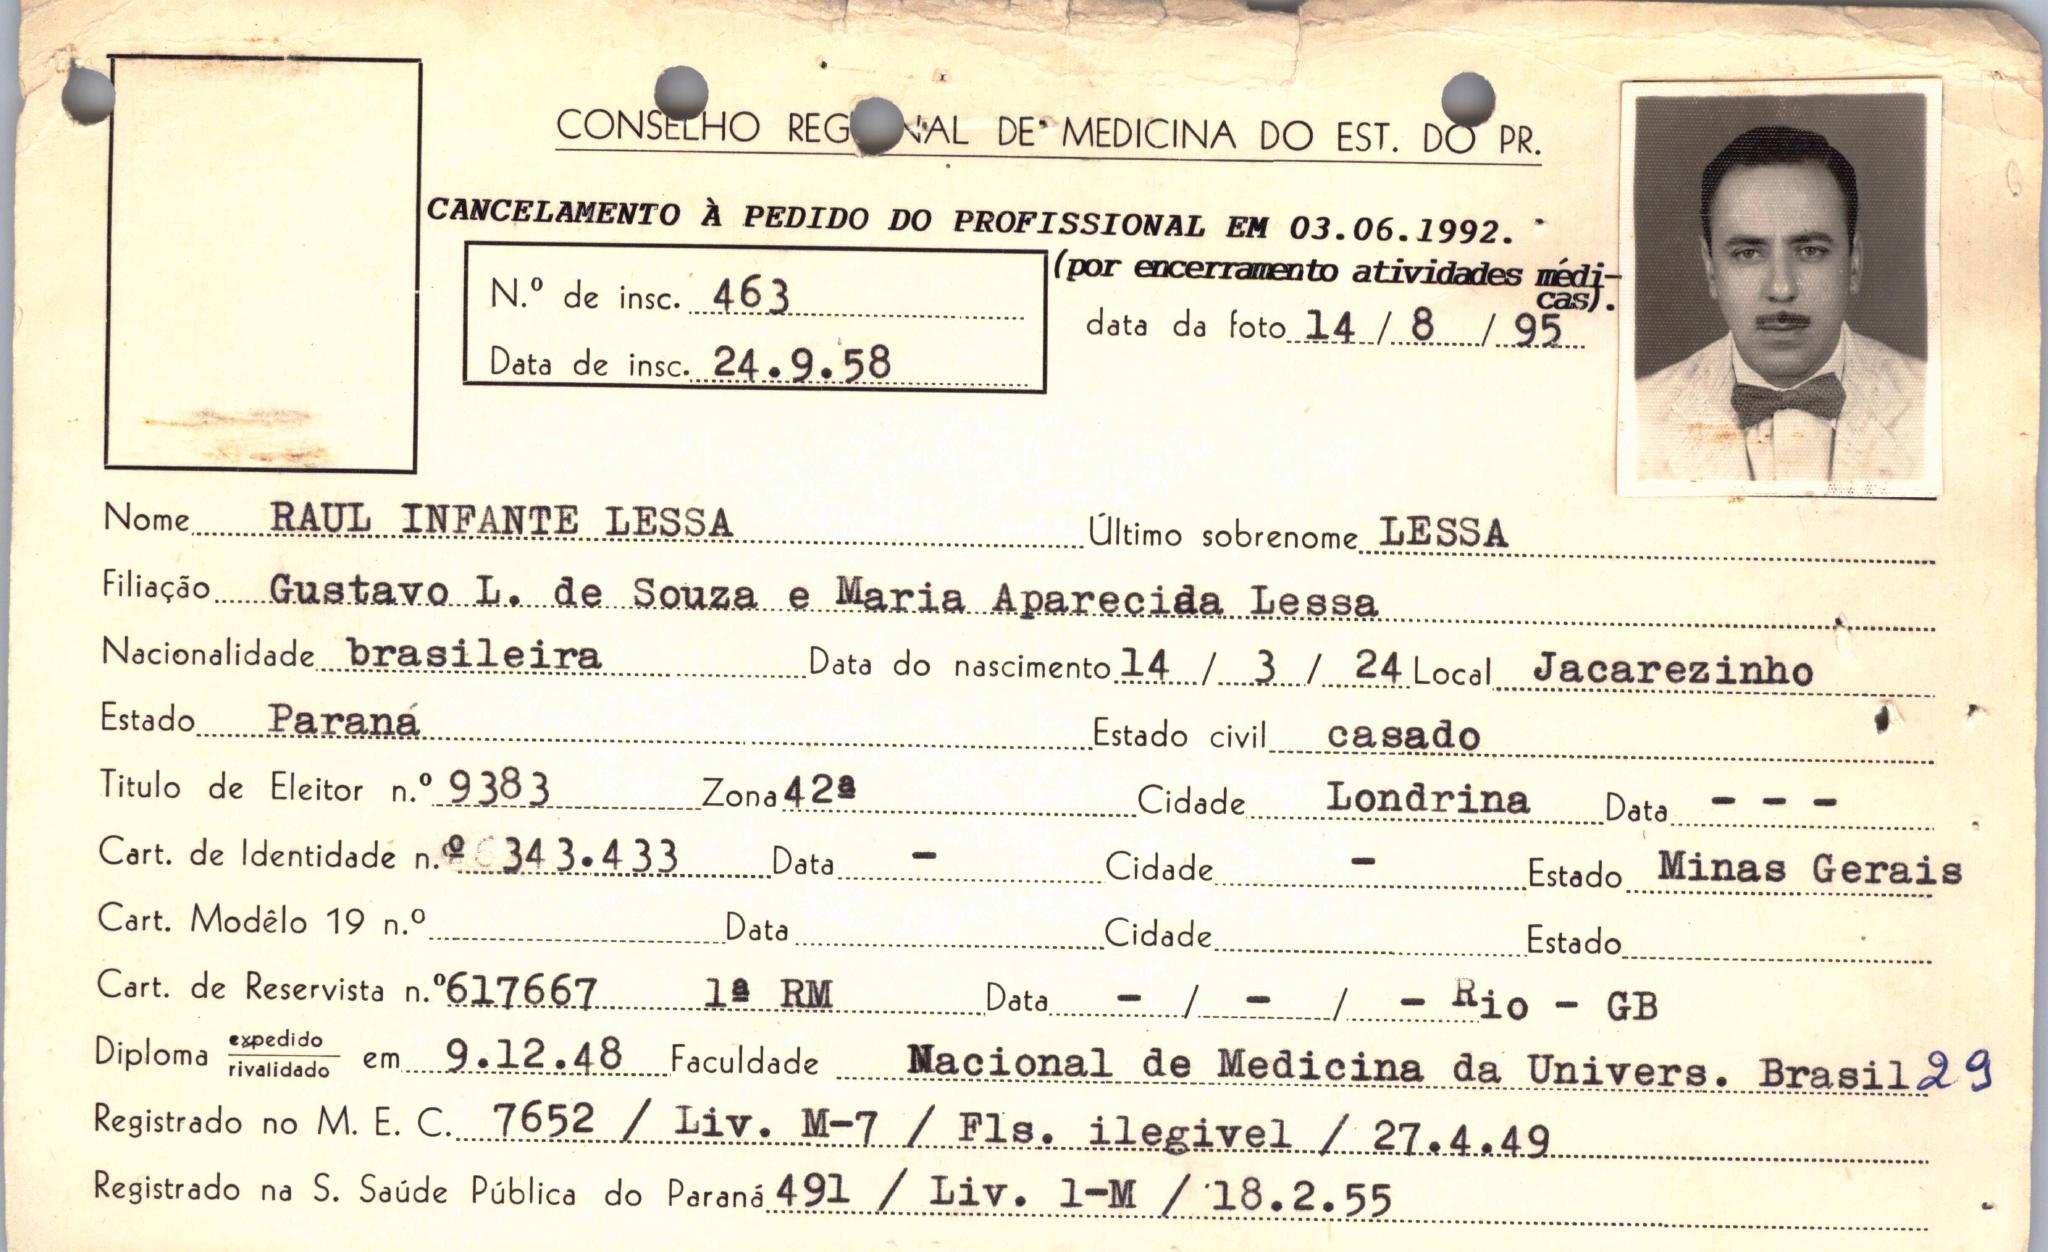 CONSELHO REGIONAL DE MEDICINA DO EST. DO PR.
CANCELAMENTO À PEDIDO DO PROFISSIONAL EM 03.06.1992.
(por encerramento atividades médi-
cas).
N.º de insc. 463
data da foto 14 / 8 / 95
Data de insc. 24.9.58
Nome RAUL INFANTE LESSA Último sobrenome LESSA
Filiação Gustavo L. de Souza e Maria Aparecida Lessa
Nacionalidade brasileira Data do nascimento 14 / 3 / 24 Local Jacarezinho
Estado Paraná Estado civil casado
Titulo de Eleitor n.º 9383 Zona 42ª Cidade Londrina Data - - -
Cart. de Identidade n.º 343.433 Data - Cidade - Estado Minas Gerais
Cart. Modêlo 19 n.º Data Cidade Estado
Cart. de Reservista n.º 617667 1ª RM Data - / - / - Rio - GB
Diploma expedido/rivalidado em 9.12.48 Faculdade Nacional de Medicina da Univers. Brasil 29
Registrado no M. E. C. 7652 / Liv. M-7 / Fls. ilegivel / 27.4.49
Registrado na S. Saúde Pública do Paraná 491 / Liv. 1-M / 18.2.55